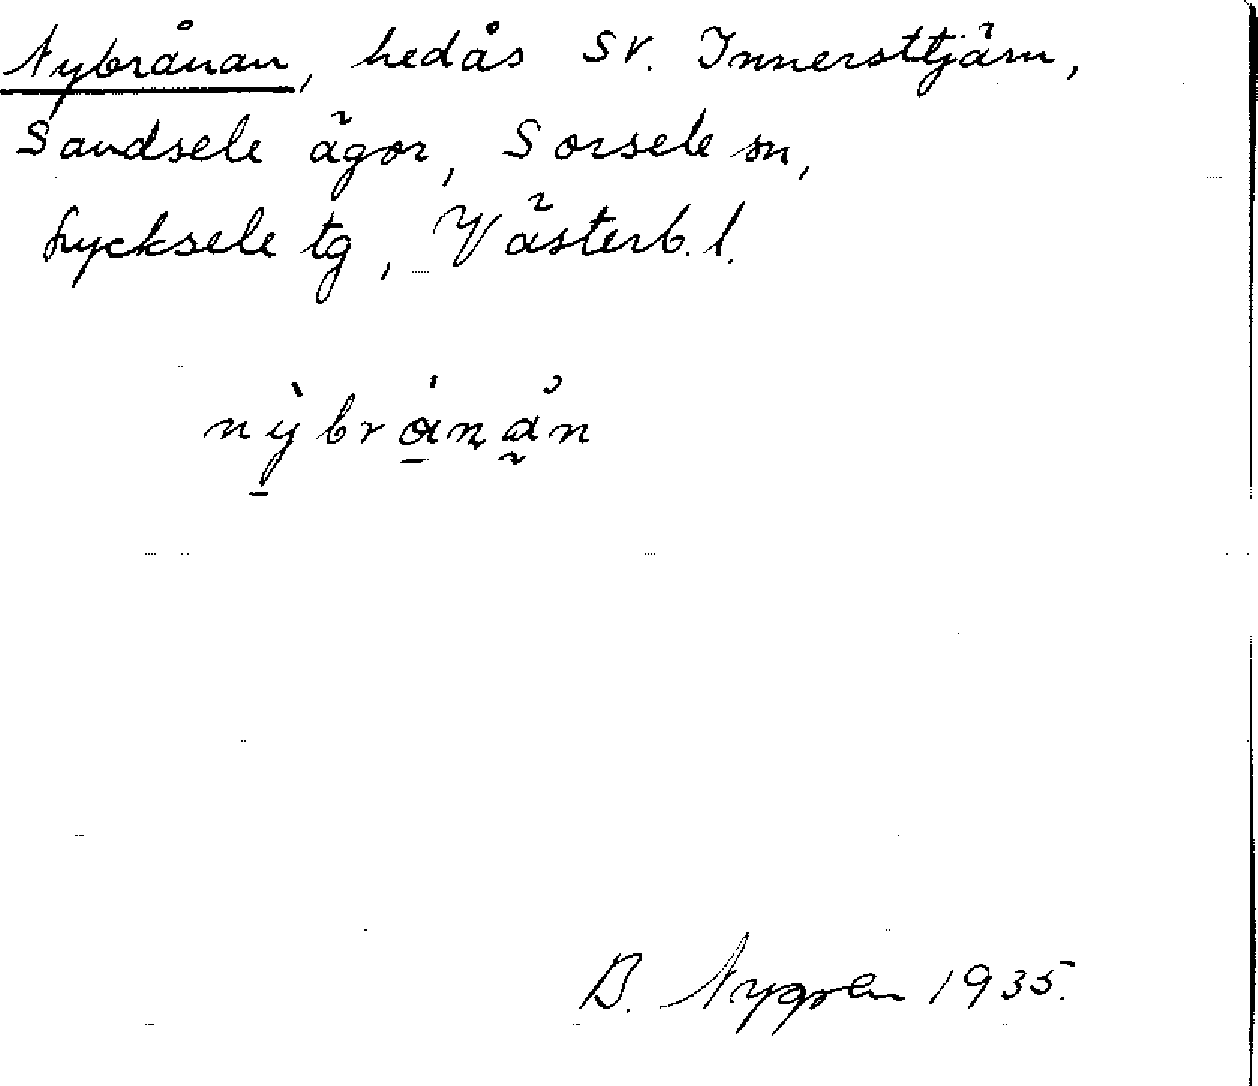 Nybrånan, hedås SV. Innersttjärn,
Sandsele ägor, Sorsele sn,
Lycksele tg, Västerb. l.
nỳbránån
B. Nygren 1935.